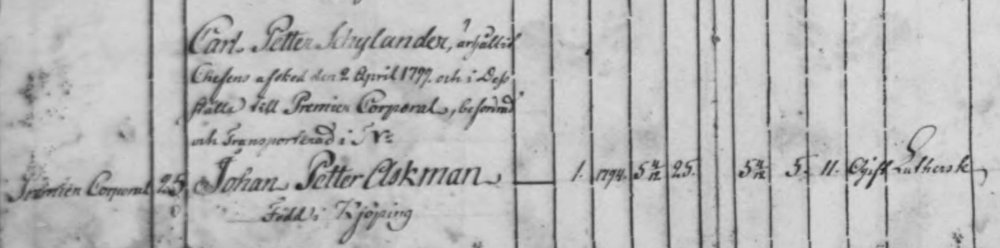 Carl Petter Schylander, ärhållit
Chefens afsked den 2 April 1797. och i Dess
ställe till Premier Corporal, befordrad
och Transporterad i N:
Premier Corporal 25 Johan Petter Askman 1. 1794. 5 4/12 25. 5 4/12 5. 11. Ogift Luthersk
Född i Kjöping